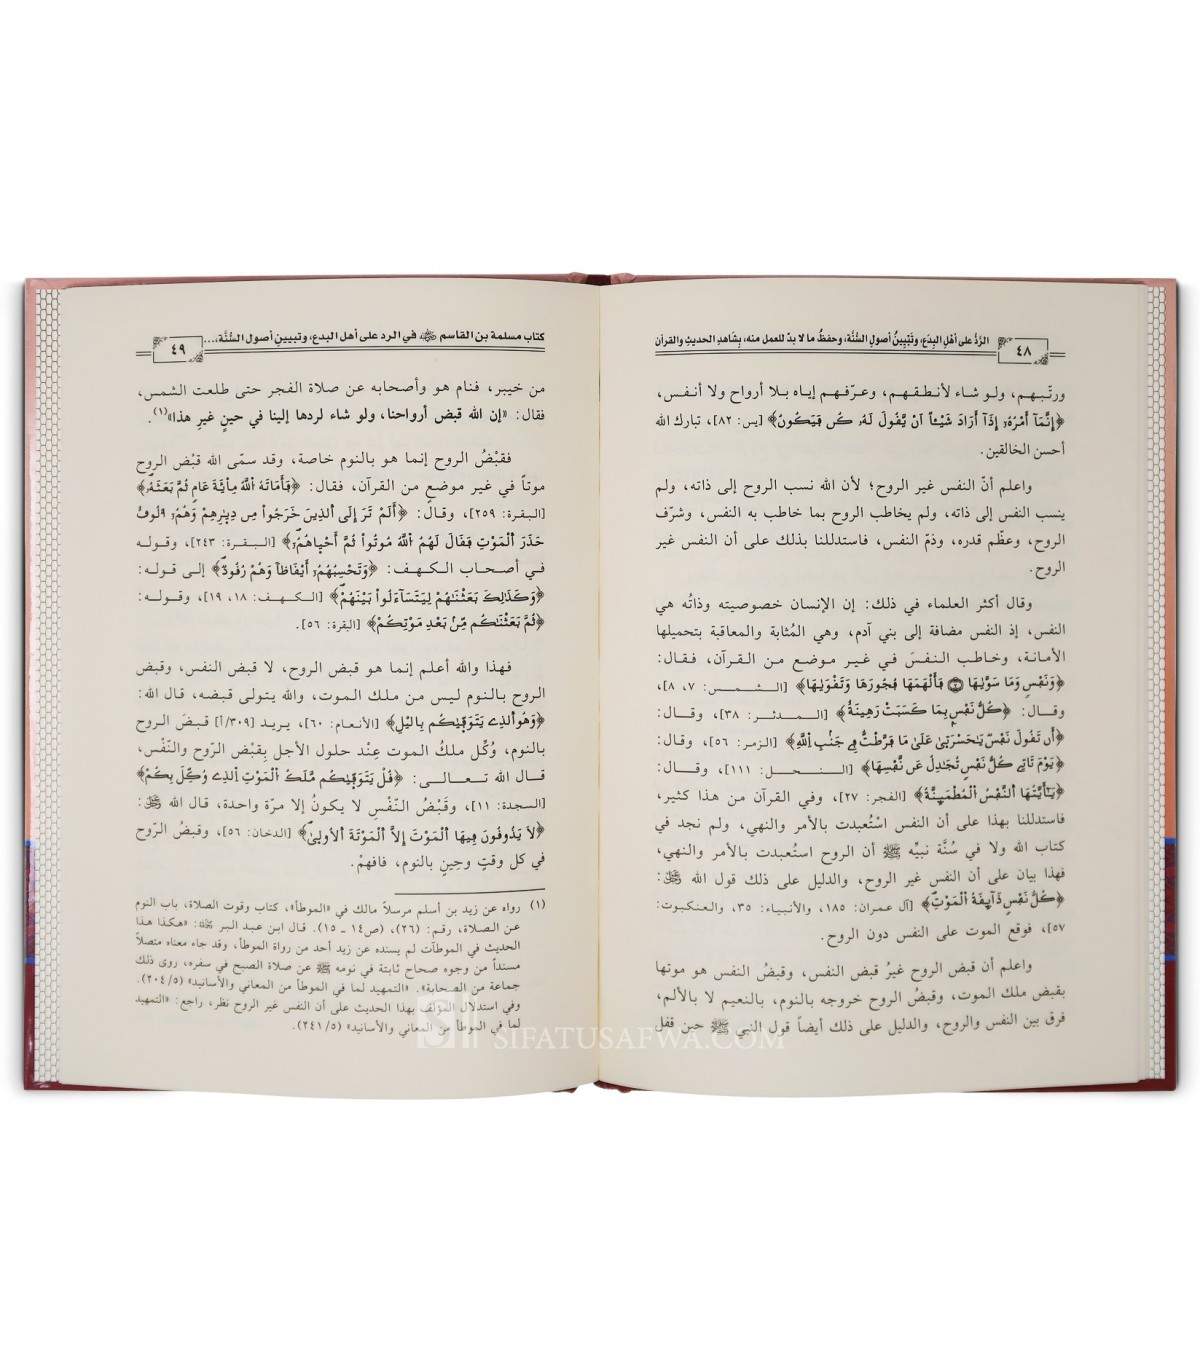 الرَّدُّ على أهْلِ البِدَعِ، وتَبْيِينُ أصولِ السُّنَّة، وحفظُ ما لا بدّ للعمل منه، بِشَاهدِ الحديثِ والقرآن
٤٨
ورتّبهم، ولو شاء لأنطقهم، وعرّفهم إياه بلا أرواح ولا أنفس،
﴿إِنَّمَآ أَمْرُهُۥٓ إِذَآ أَرَادَ شَيْـًٔا أَنْ يَّقُولَ لَهُۥ كُن فَيَكُونُ﴾ [يس: ٨٢]، تبارك الله
أحسن الخالقين.
واعلم أنّ النفس غير الروح؛ لأن الله نسب الروح إلى ذاته، ولم
ينسب النفس إلى ذاته، ولم يخاطب الروح بما خاطب به النفس، وشرّف
الروح، وعظّم قدره، وذمّ النفس، فاستدللنا بذلك على أن النفس غير
الروح.
وقال أكثر العلماء في ذلك: إن الإنسان خصوصيته وذاتُه هي
النفس، إذ النفس مضافة إلى بني آدم، وهي المُثابة والمعاقبة بتحميلها
الأمانة، وخاطب النفسَ في غير موضع من القرآن، فقال:
﴿وَنَفْسٍ وَمَا سَوَّىٰهَا ۝٧ فَأَلْهَمَهَا فُجُورَهَا وَتَقْوَىٰهَا﴾ [الشمس: ٧، ٨]،
وقال: ﴿كُلُّ نَفْسٍۭ بِمَا كَسَبَتْ رَهِينَةٌ﴾ [المدثر: ٣٨]، وقال:
﴿أَن تَقُولَ نَفْسٌ يَٰحَسْرَتَىٰ عَلَىٰ مَا فَرَّطتُ فِي جَنۢبِ اِللَّهِ﴾ [الزمر: ٥٦]، وقال:
﴿يَوْمَ تَأْتِي كُلُّ نَفْسٍ تُجَٰدِلُ عَن نَّفْسِهَا﴾ [النحل: ١١١]، وقال:
﴿يَٰٓأَيَّتُهَا اَ۬لنَّفْسُ اُ۬لْمُطْمَئِنَّةُ﴾ [الفجر: ٢٧]، وفي القرآن من هذا كثير،
فاستدللنا بهذا على أن النفس اسْتُعبدت بالأمر والنهي، ولم نجد في
كتاب الله ولا في سُنَّة نبيِّه ﷺ أن الروح استُعبدت بالأمر والنهي،
فهذا بيان على أن النفس غير الروح، والدليل على ذلك قول الله ﷻ:
﴿كُلُّ نَفْسٍ ذَآئِقَةُ اُ۬لْمَوْتِ﴾ [آل عمران: ١٨٥، والأنبياء: ٣٥، والعنكبوت:
٥٧]، فوقع الموت على النفس دون الروح.
واعلم أن قبض الروح غيرُ قبض النفس، وقبضُ النفس هو موتها
بقبض ملك الموت، وقبضُ الروح خروجه بالنوم، بالنعيم لا بالألم،
فرق بين النفس والروح، والدليل على ذلك أيضاً قول النبي ﷺ حين قفل
كتاب مسلمة بن القاسم في الرد على أهل البدع، وتبيينِ أصول السُّنَّة،...
٤٩
من خيبر، فنام هو وأصحابه عن صلاة الفجر حتى طلعت الشمس،
فقال: «إن الله قبض أرواحنا، ولو شاء لردها إلينا في حينٍ غيرِ هذا»(١).
فقبْضُ الروح إنما هو بالنوم خاصة، وقد سمّى الله قبْض الروح
موتاً في غير موضع من القرآن، فقال: ﴿فَأَمَاتَهُ اُ۬للَّهُ مِاْئَةَ عَامٍ ثُمَّ بَعَثَهُۥ﴾
[البقرة: ٢٥٩]، وقال: ﴿أَلَمْ تَرَ إِلَى اَ۬لذِينَ خَرَجُواْ مِن دِيٰ۪رِهِمْ وَهُمُۥٓ أُلُوفٌ
حَذَرَ اَ۬لْمَوْتِ فَقَالَ لَهُمُ اُ۬للَّهُ مُوتُواْ ثُمَّ أَحْيٰ۪هُمُۥٓ﴾ [البقرة: ٢٤٣]، وقوله
في أصحاب الكهف: ﴿وَتَحْسِبُهُمُۥٓ أَيْقَاظاً وَهُمْ رُقُودٌ﴾ إلى قوله:
﴿وَكَذَٰلِكَ بَعَثْنَٰهُمْ لِيَتَسَآءَلُواْ بَيْنَهُمْ﴾ [الكهف: ١٨، ١٩]، وقوله:
﴿ثُمَّ بَعَثْنَٰكُم مِّنۢ بَعْدِ مَوْتِكُمْ﴾ [البقرة: ٥٦].
فهذا والله أعلم إنما هو قبض الروح، لا قبض النفس، وقبض
الروح بالنوم ليس من ملك الموت، والله يتولى قبضه، قال الله:
﴿وَهُوَ اَ۬لذِي يَتَوَفَّىٰكُم بِالَّيْلِ﴾ [الأنعام: ٦٠]، يريد [٣٠٩/أ] قبضَ الروح
بالنوم، وُكّل ملكُ الموت عِنْد حلول الأجل بِقبْض الرّوح والنَّفْس،
قال الله تعالى: ﴿قُلْ يَتَوَفَّىٰكُم مَّلَكُ اُ۬لْمَوْتِ اِ۬لذِي وُكِّلَ بِكُمْ﴾
[السجدة: ١١]، وقَبْضُ النَّفْسِ لا يكونُ إلا مرّة واحدة، قال الله ﷻ:
﴿لَا يَذُوقُونَ فِيهَا اَ۬لْمَوْتَ إِلَّا اَ۬لْمَوْتَةَ اَ۬لُاولَىٰ﴾ [الدخان: ٥٦]، وقبضُ الرّوح
في كل وقتٍ وحِينٍ بالنوم، فافهمْ.
(١) رواه عن زيد بن أسلم مرسلاً مالك في «الموطأ»، كتاب وقوت الصلاة، باب النوم
عن الصلاة، رقم: (٢٦)، (ص١٤ ـ ١٥). قال ابن عبد البر: «هكذا هذا
الحديث في الموطآت لم يسنده عن زيد أحد من رواة الموطأ، وقد جاء معناه متصلاً
مسنداً من وجوه صحاح ثابتة في نومه ﷺ عن صلاة الصبح في سفره، روى ذلك
جماعة من الصحابة». «التمهيد لما في الموطأ من المعاني والأسانيد» (٢٠٤/٥).
وفي استدلال المؤلف بهذا الحديث على أن النفس غير الروح نظر، راجع: «التمهيد
لما في الموطأ من المعاني والأسانيد» (٢٤١/٥).
SIFATUSAFWA.COM